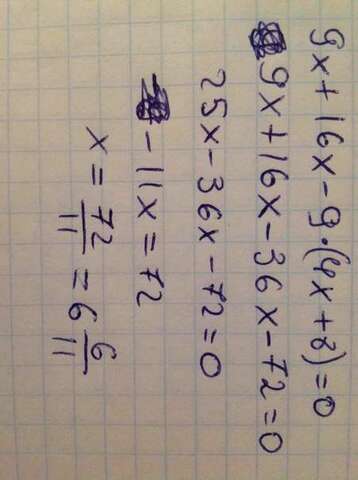 9x+16x-9·(4x+8)=0
9x+16x-36x-72=0
25x-36x-72=0
-11x=72
x=72/11=6 6/11